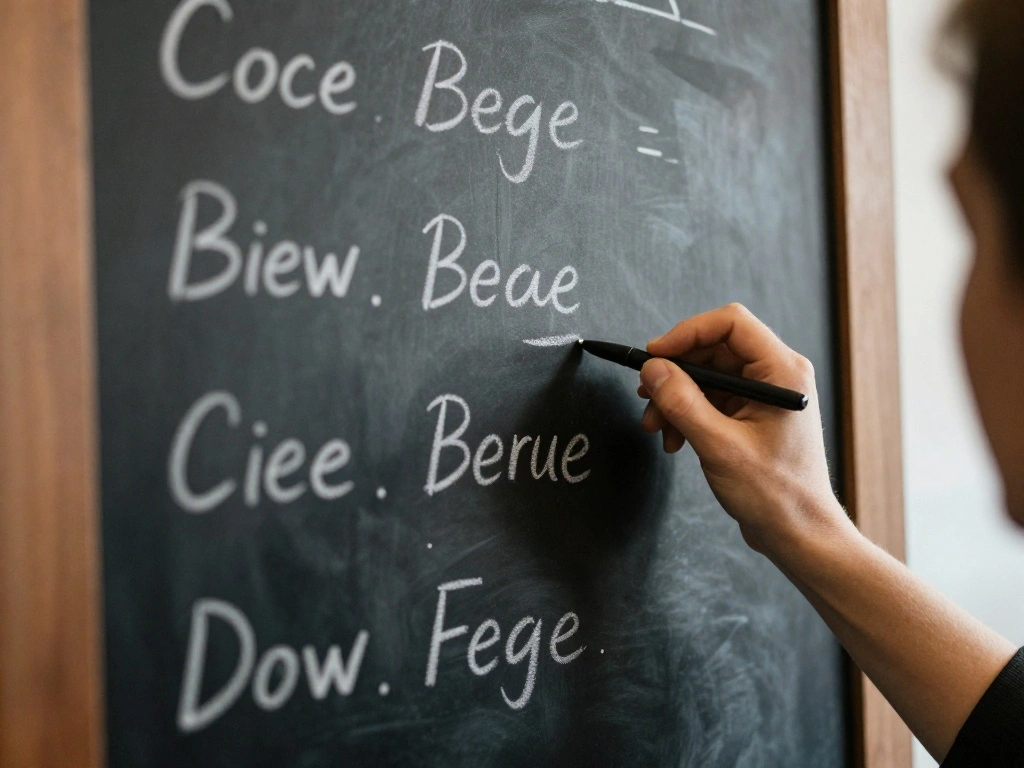 Coce. Bege
Biew. Beae
Ciee. Berue
Dow. Fege.